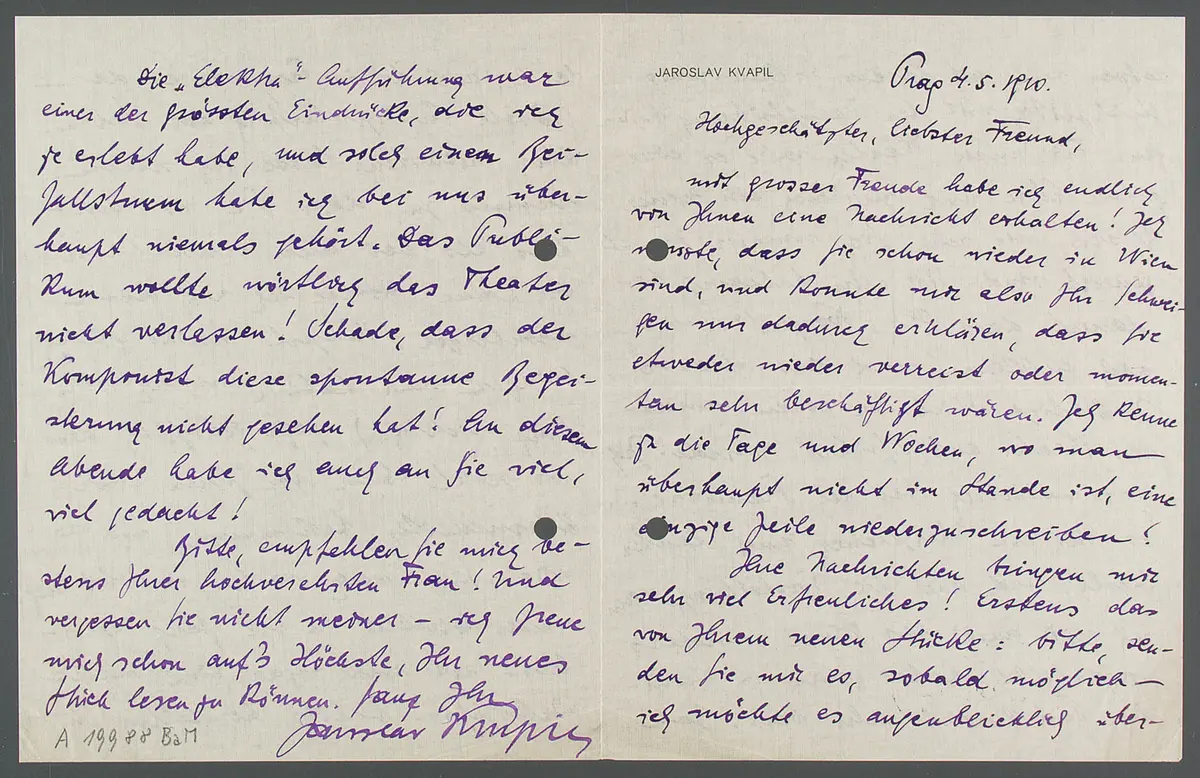 JAROSLAV KVAPIL
Prag 4. 5. 1910.
Hochgeschätzter, liebster Freund,
mit grosser Freude habe ich endlich
von Ihnen eine Nachricht erhalten! Ich
wusste, dass Sie schon wieder in Wien
sind, und konnte mir also Ihr Schwei-
gen nur dadurch erklären, dass Sie
etweder wieder verreist oder momen-
tan sehr beschäftigt wären. Ich kenne
ja die Tage und Wochen, wo man
überhaupt nicht im Stande ist, eine
einzige Zeile niederzuschreiben!
Ihre Nachrichten bringen mir
sehr viel Erfreuliches! Erstens das
von Ihrem neuen Stücke: bitte, sen-
den Sie mir es, sobald möglich –
ich möchte es augenblicklich über-
Die „Elektra"-Aufführung war
einer der grössten Eindrücke, die ich
je erlebt habe, und solch einem Bei-
fallsturm habe ich bei uns über-
haupt niemals gehört. Das Publi-
kum wollte wörtlich das Theater
nicht verlassen! Schade, dass der
Komponist diese spontanne Begei-
sterung nicht gesehen hat! An diesem
Abende habe ich auch an Sie viel,
viel gedacht!
Bitte, empfehlen Sie mich be-
stens Ihrer hochverehrten Frau! Und
vergessen Sie nicht meiner – ich freue
mich schon auf's Höchste, Ihr neues
Stück lesen zu können. Ganz Ihr
Jaroslav Kvapil
A 19988 BaM